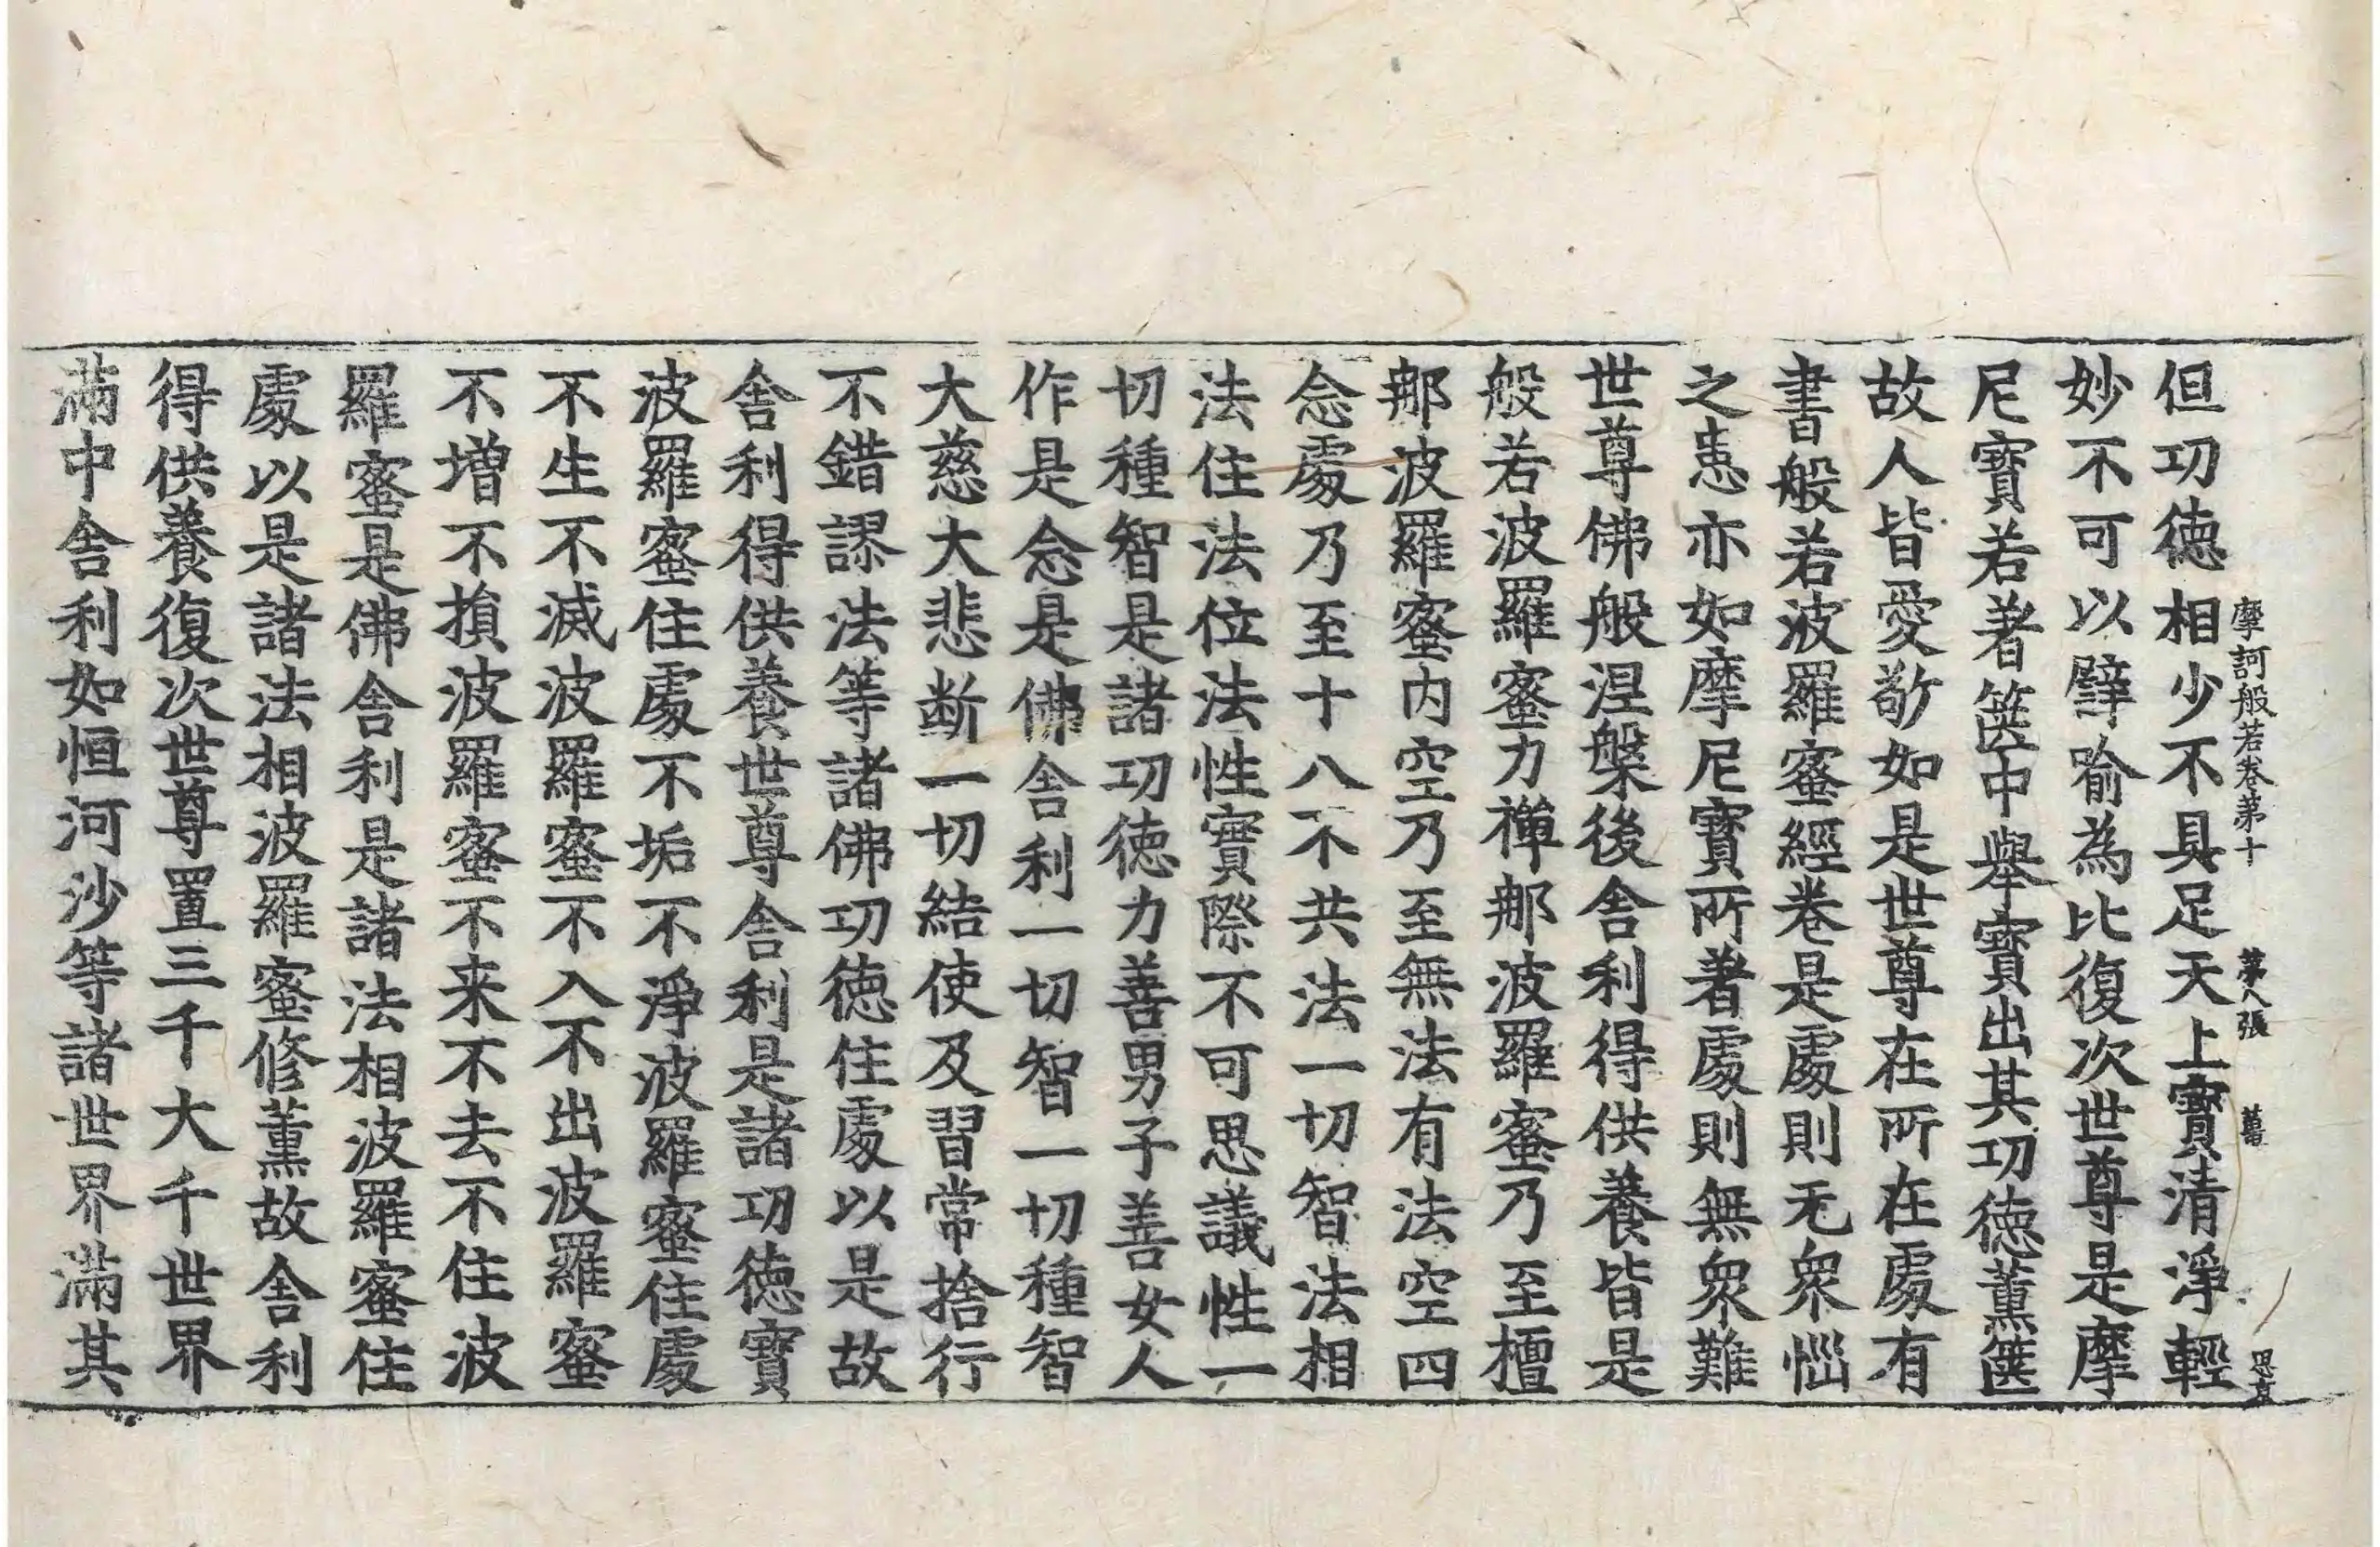 摩訶般若卷苐十 苐八張 薑
但功徳相少不具足天上寶清淨輕
妙不可以譬喻為比復次世尊是摩
尼寶若著篋中舉寶出其功徳薫篋
故人皆愛敬如是世尊在所在處有
書般若波羅蜜經卷是處則无衆惱
之患亦如摩尼寶所著處則無衆難
世尊佛般涅槃後舎利得供養皆是
般若波羅蜜力禪那波羅蜜乃至檀
那波羅蜜内空乃至無法有法空四
念處乃至十八不共法一切智法相
法住法位法性實際不可思議性一
切種智是諸功徳力善男子善女人
作是念是佛舎利一切智一切種智
大慈大悲断一切結使及習常捨行
不錯謬法等諸佛功徳住處以是故
舎利得供養世尊舎利是諸功徳寶
波羅蜜住處不垢不淨波羅蜜住處
不生不滅波羅蜜不入不出波羅蜜
不增不損波羅蜜不来不去不住波
羅蜜是佛舎利是諸法相波羅蜜住
處以是諸法相波羅蜜修薫故舎利
得供養復次世尊置三千大千世界
滿中舎利如恒河沙等諸世界滿其